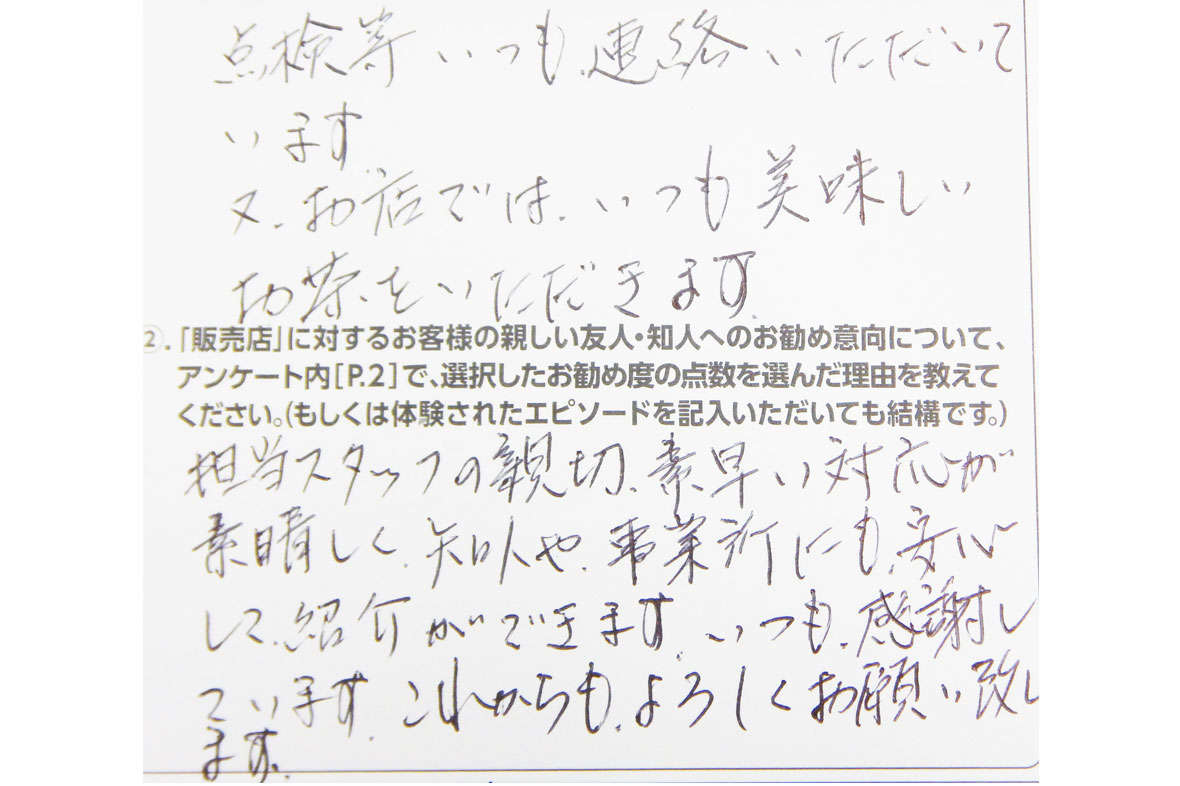 点検等いつも、連絡いただいて
います
又、お店では、いつも美味しい
お茶をいただきます
②.「販売店」に対するお客様の親しい友人・知人へのお勧め意向について、
アンケート内[P.2]で、選択したお勧め度の点数を選んだ理由を教えて
ください。(もしくは体験されたエピソードを記入いただいても結構です。)
担当スタッフの親切、素早い対応が
素晴しく、知人や、事業所にも、安心
して、紹介ができます。いつも、感謝し
ています。これからも、よろしくお願い致し
ます。